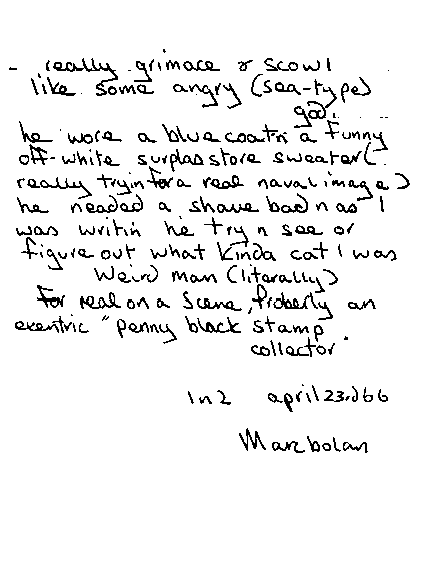 - really grimace & scowl
like some angry (sea-type)
god.
he wore a blue coat n a funny
off-white surplas store sweater (
really tryin for a real naval image)
he needed a shave bad n as I
was writin he try n see or
figure out what kinda cat I was
Weird man (literally)
for real on a scene, proberly an
exentric "penny black stamp
collector.
In 2 april 23rd 66
Marc bolan